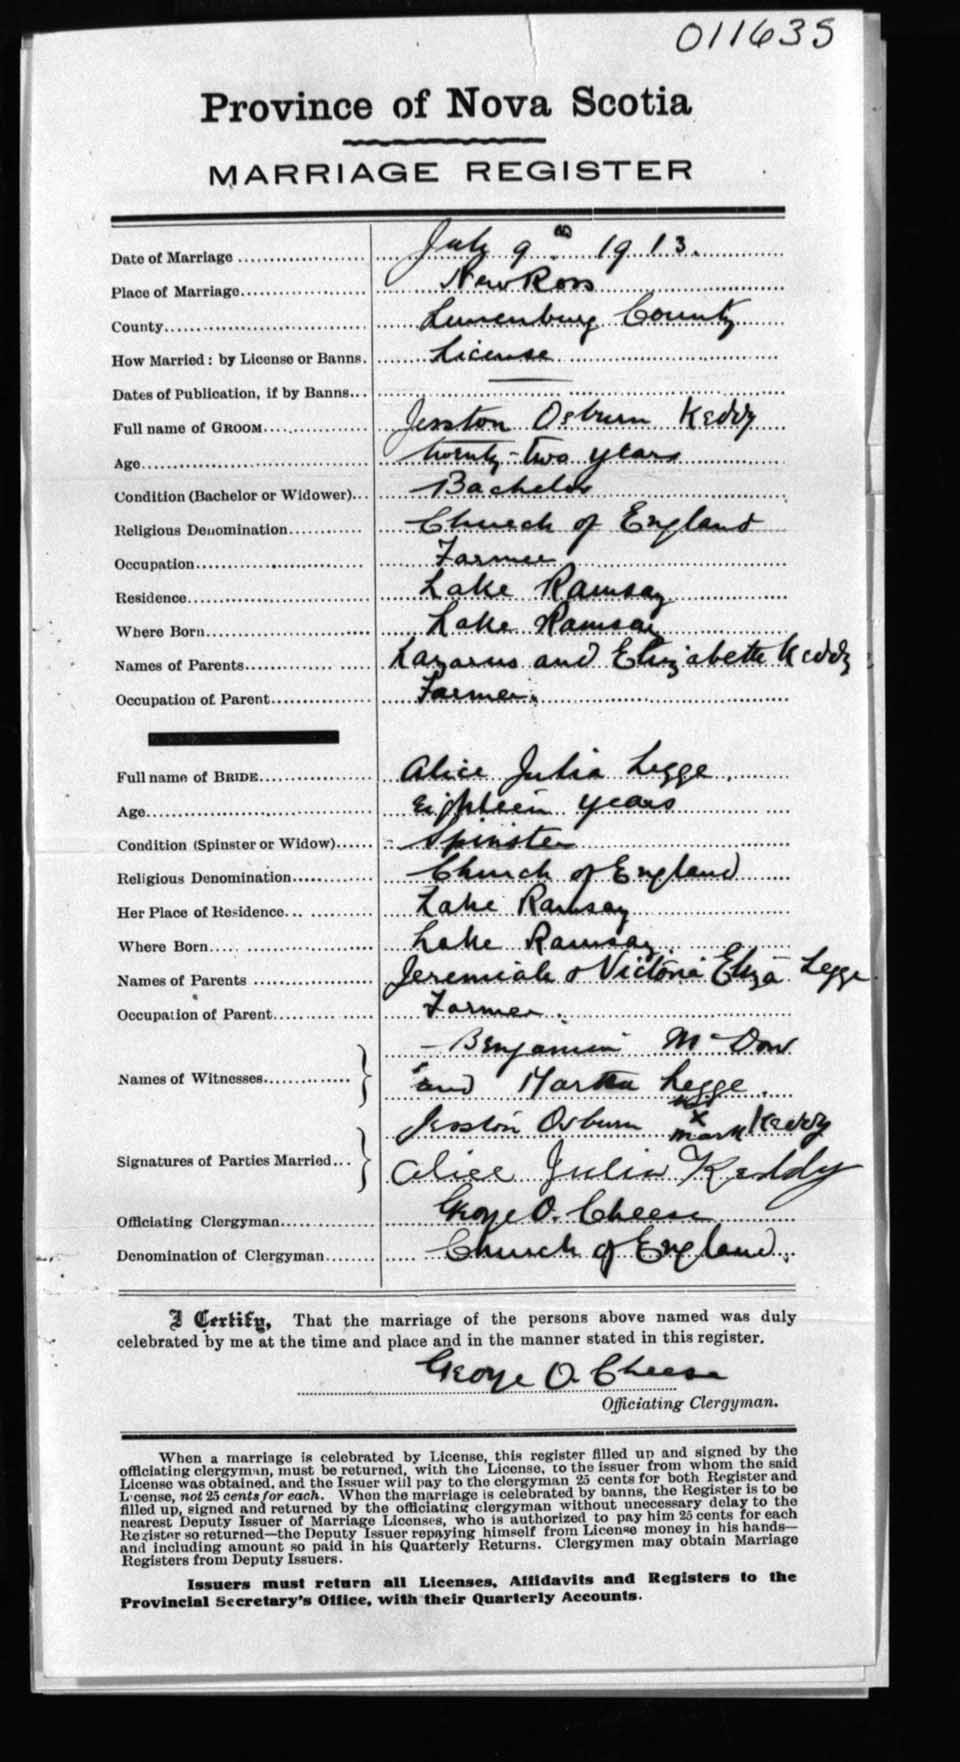 011635
Province of Nova Scotia
MARRIAGE REGISTER
Date of Marriage July 9th 1913.
Place of Marriage New Ross
County Lunenburg County
How Married: by License or Banns. License
Dates of Publication, if by Banns
Full name of GROOM Jesston Osburn Keddy
Age twenty-two years
Condition (Bachelor or Widower) Bachelor
Religious Denomination Church of England
Occupation Farmer
Residence Lake Ramsay
Where Born Lake Ramsay
Names of Parents Lazarus and Elizabeth Keddy
Occupation of Parent Farmer.
Full name of BRIDE Alice Julia Legge.
Age Eighteen years
Condition (Spinster or Widow) Spinster
Religious Denomination Church of England
Her Place of Residence Lake Ramsay
Where Born Lake Ramsay.
Names of Parents Jeremiah & Victoria Eliza Legge.
Occupation of Parent Farmer.
Benjamin Mc Dow
Names of Witnesses and Martha Legge.
Jesston Osburn his x mark Keddy
Signatures of Parties Married Alice Julia Keddy
Officiating Clergyman George O. Cheese
Denomination of Clergyman Church of England.
I Certify, That the marriage of the persons above named was duly
celebrated by me at the time and place and in the manner stated in this register.
George O. Cheese
Officiating Clergyman.
When a marriage is celebrated by License, this register filled up and signed by the
officiating clergyman, must be returned, with the License, to the issuer from whom the said
License was obtained, and the Issuer will pay to the clergyman 25 cents for both Register and
License, not 25 cents for each. When the marriage is celebrated by banns, the Register is to be
filled up, signed and returned by the officiating clergyman without unecessary delay to the
nearest Deputy Issuer of Marriage Licenses, who is authorized to pay him 25 cents for each
Register so returned—the Deputy Issuer repaying himself from License money in his hands—
and including amount so paid in his Quarterly Returns. Clergymen may obtain Marriage
Registers from Deputy Issuers.
Issuers must return all Licenses, Affidavits and Registers to the
Provincial Secretary's Office, with their Quarterly Accounts.